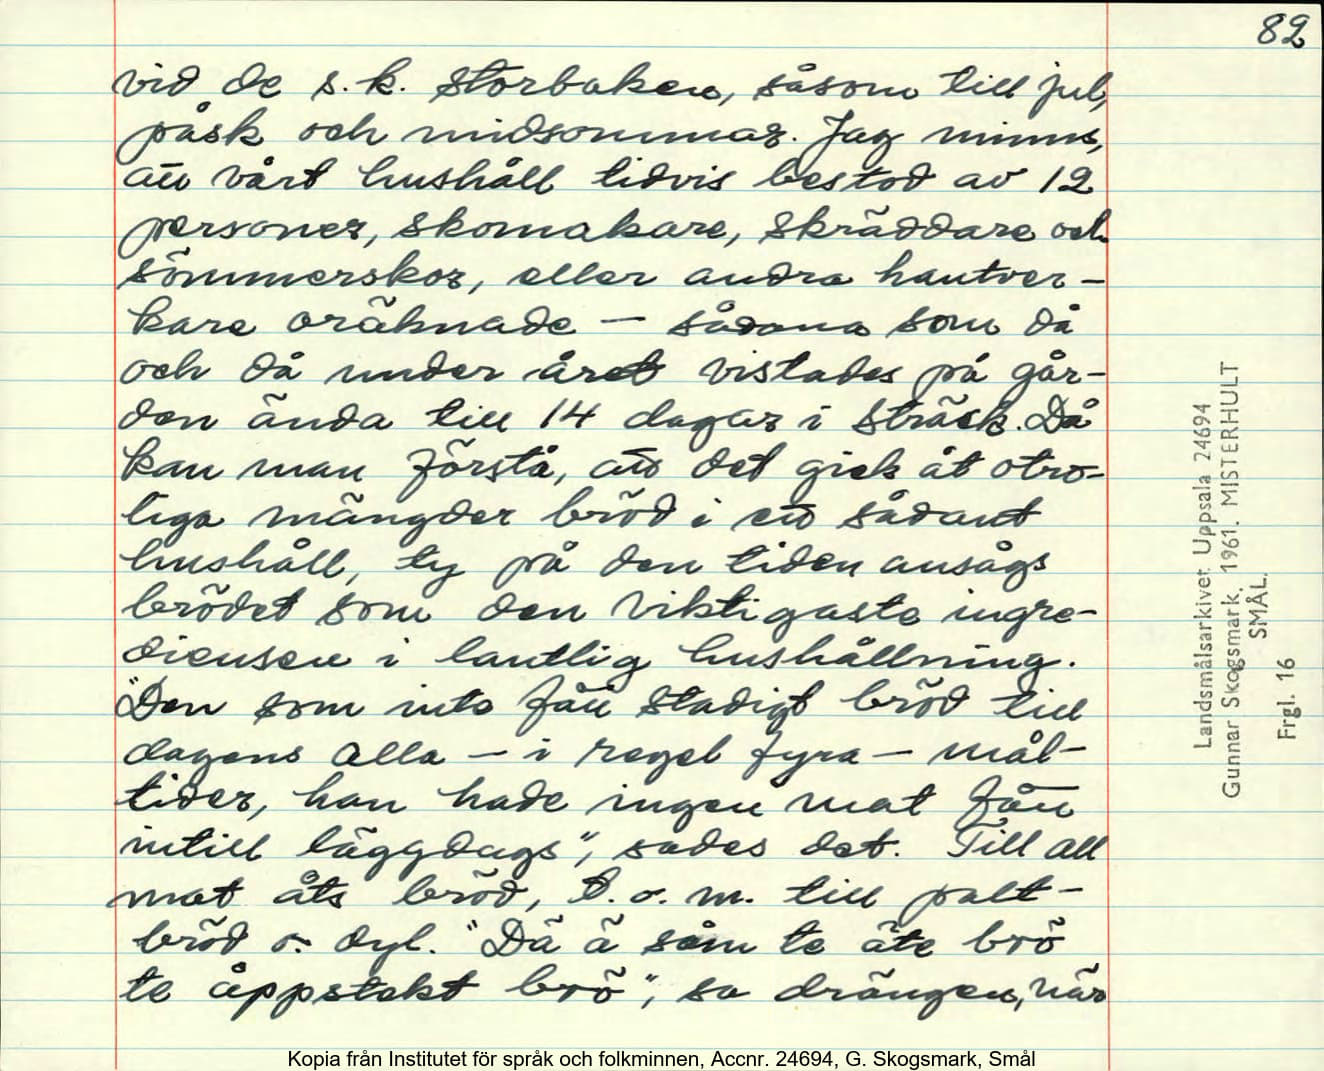 82
vid de s.k. storbaken, såsom till jul,
påsk och midsommar. Jag minns,
att vårt hushåll tidvis bestod av 12
personer, skomakare, skräddare och
sömmerskor, eller andra hantver-
kare oräknade — sådana som då
och då under året vistades på går-
den ända till 14 dagar i sträck. Då
kan man förstå, att det gick åt otro-
liga mängder bröd i ett sådant
hushåll, ty på den tiden ansågs
brödet som den viktigaste ingre-
diensen i lantlig hushållning.
"Den som inte fått stadigt bröd till
dagens alla — i regel fyra — mål-
tider, han hade ingen mat fått
intill läggdags", sades det. Till all
mat åts bröd, t.o.m. till palt-
bröd o. dyl. "Dä ä såm te äte brö
te åppstekt brö", sa drängen, när
Landsmålsarkivet Uppsala 24694
Gunnar Skogsmark, 1961. MISTERHULT
SMÅL.
Frgl. 16
Kopia från Institutet för språk och folkminnen, Accnr. 24694, G. Skogsmark, Smål